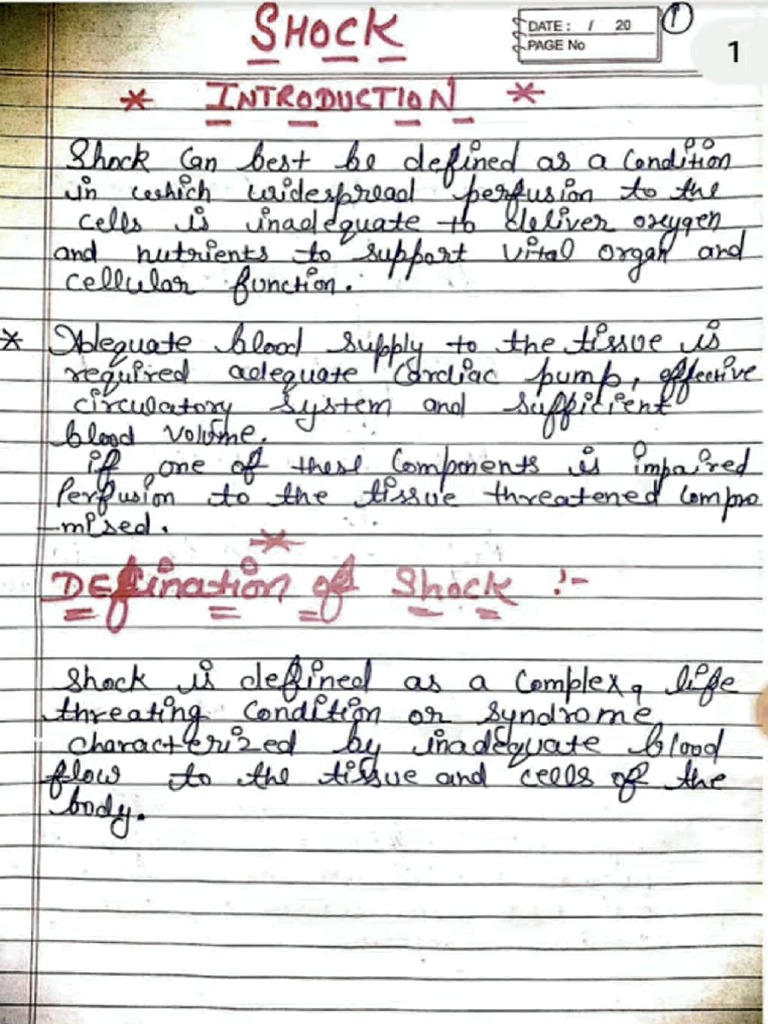 SHOCK
DATE: / 20
PAGE No
1
1
* INTRODUCTION *
Shock Can best be defined as a Condition
in which widespread perfusion to the
cells is inadequate to deliver oxygen
and nutrients to support vital organ and
cellular function.
* Adequate blood supply to the tissue is
required adequate Cardiac pump, effective
circulatory system and sufficient
blood volume.
if one of these Components is impaired
Perfusion to the tissue threatened Compro
-mised.
*
DEfination of Shock :-
Shock is defined as a Complex, life
threating Condition or syndrome
characterized by inadequate blood
flow to the tissue and cells of the
body.